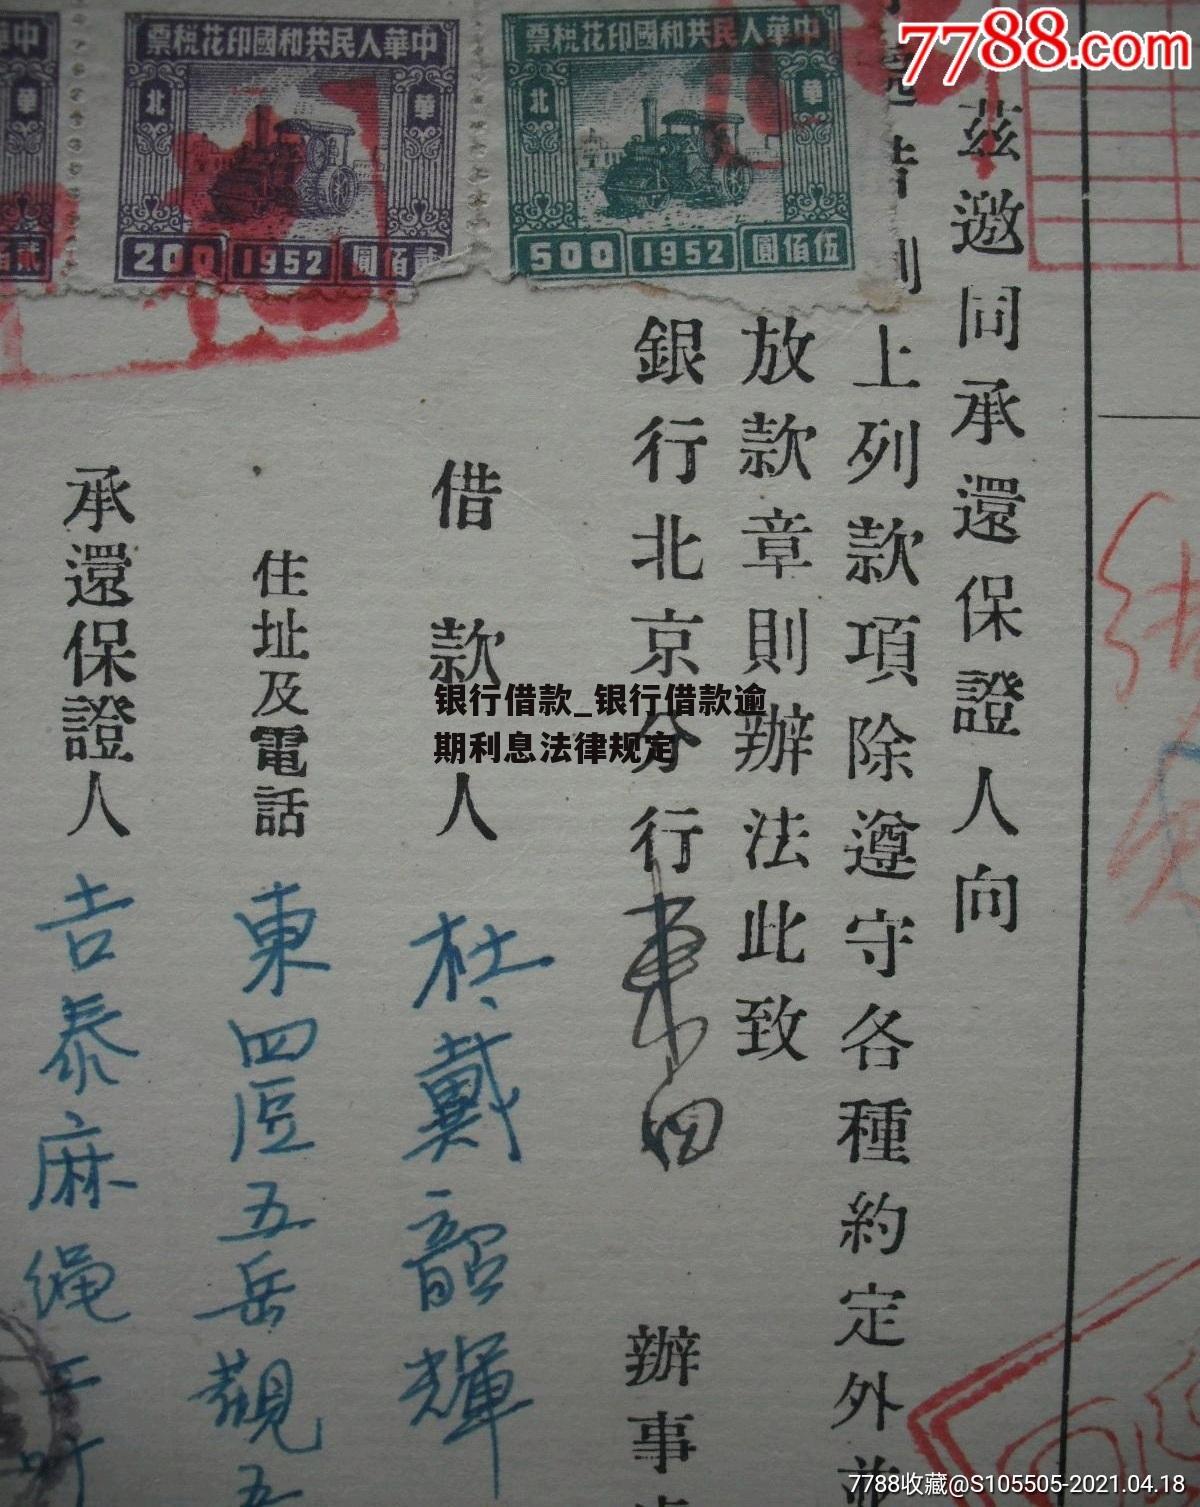 7788.com
中華人民共和國印花税票
北
華
200
1952
貳佰圓
中華人民共和國印花税票
北
華
500
1952
伍佰圓
茲邀同承還保證人向
上列款項除遵守各種約定外並
放款章則辦法此致
銀行北京分行東四
辦事
借款人
杜戴韶輝
住址及電話
東四區五岳觀五
承還保證人
吉泰麻绳
银行借款_银行借款逾
期利息法律规定
7788收藏@S105505-2021.04.18